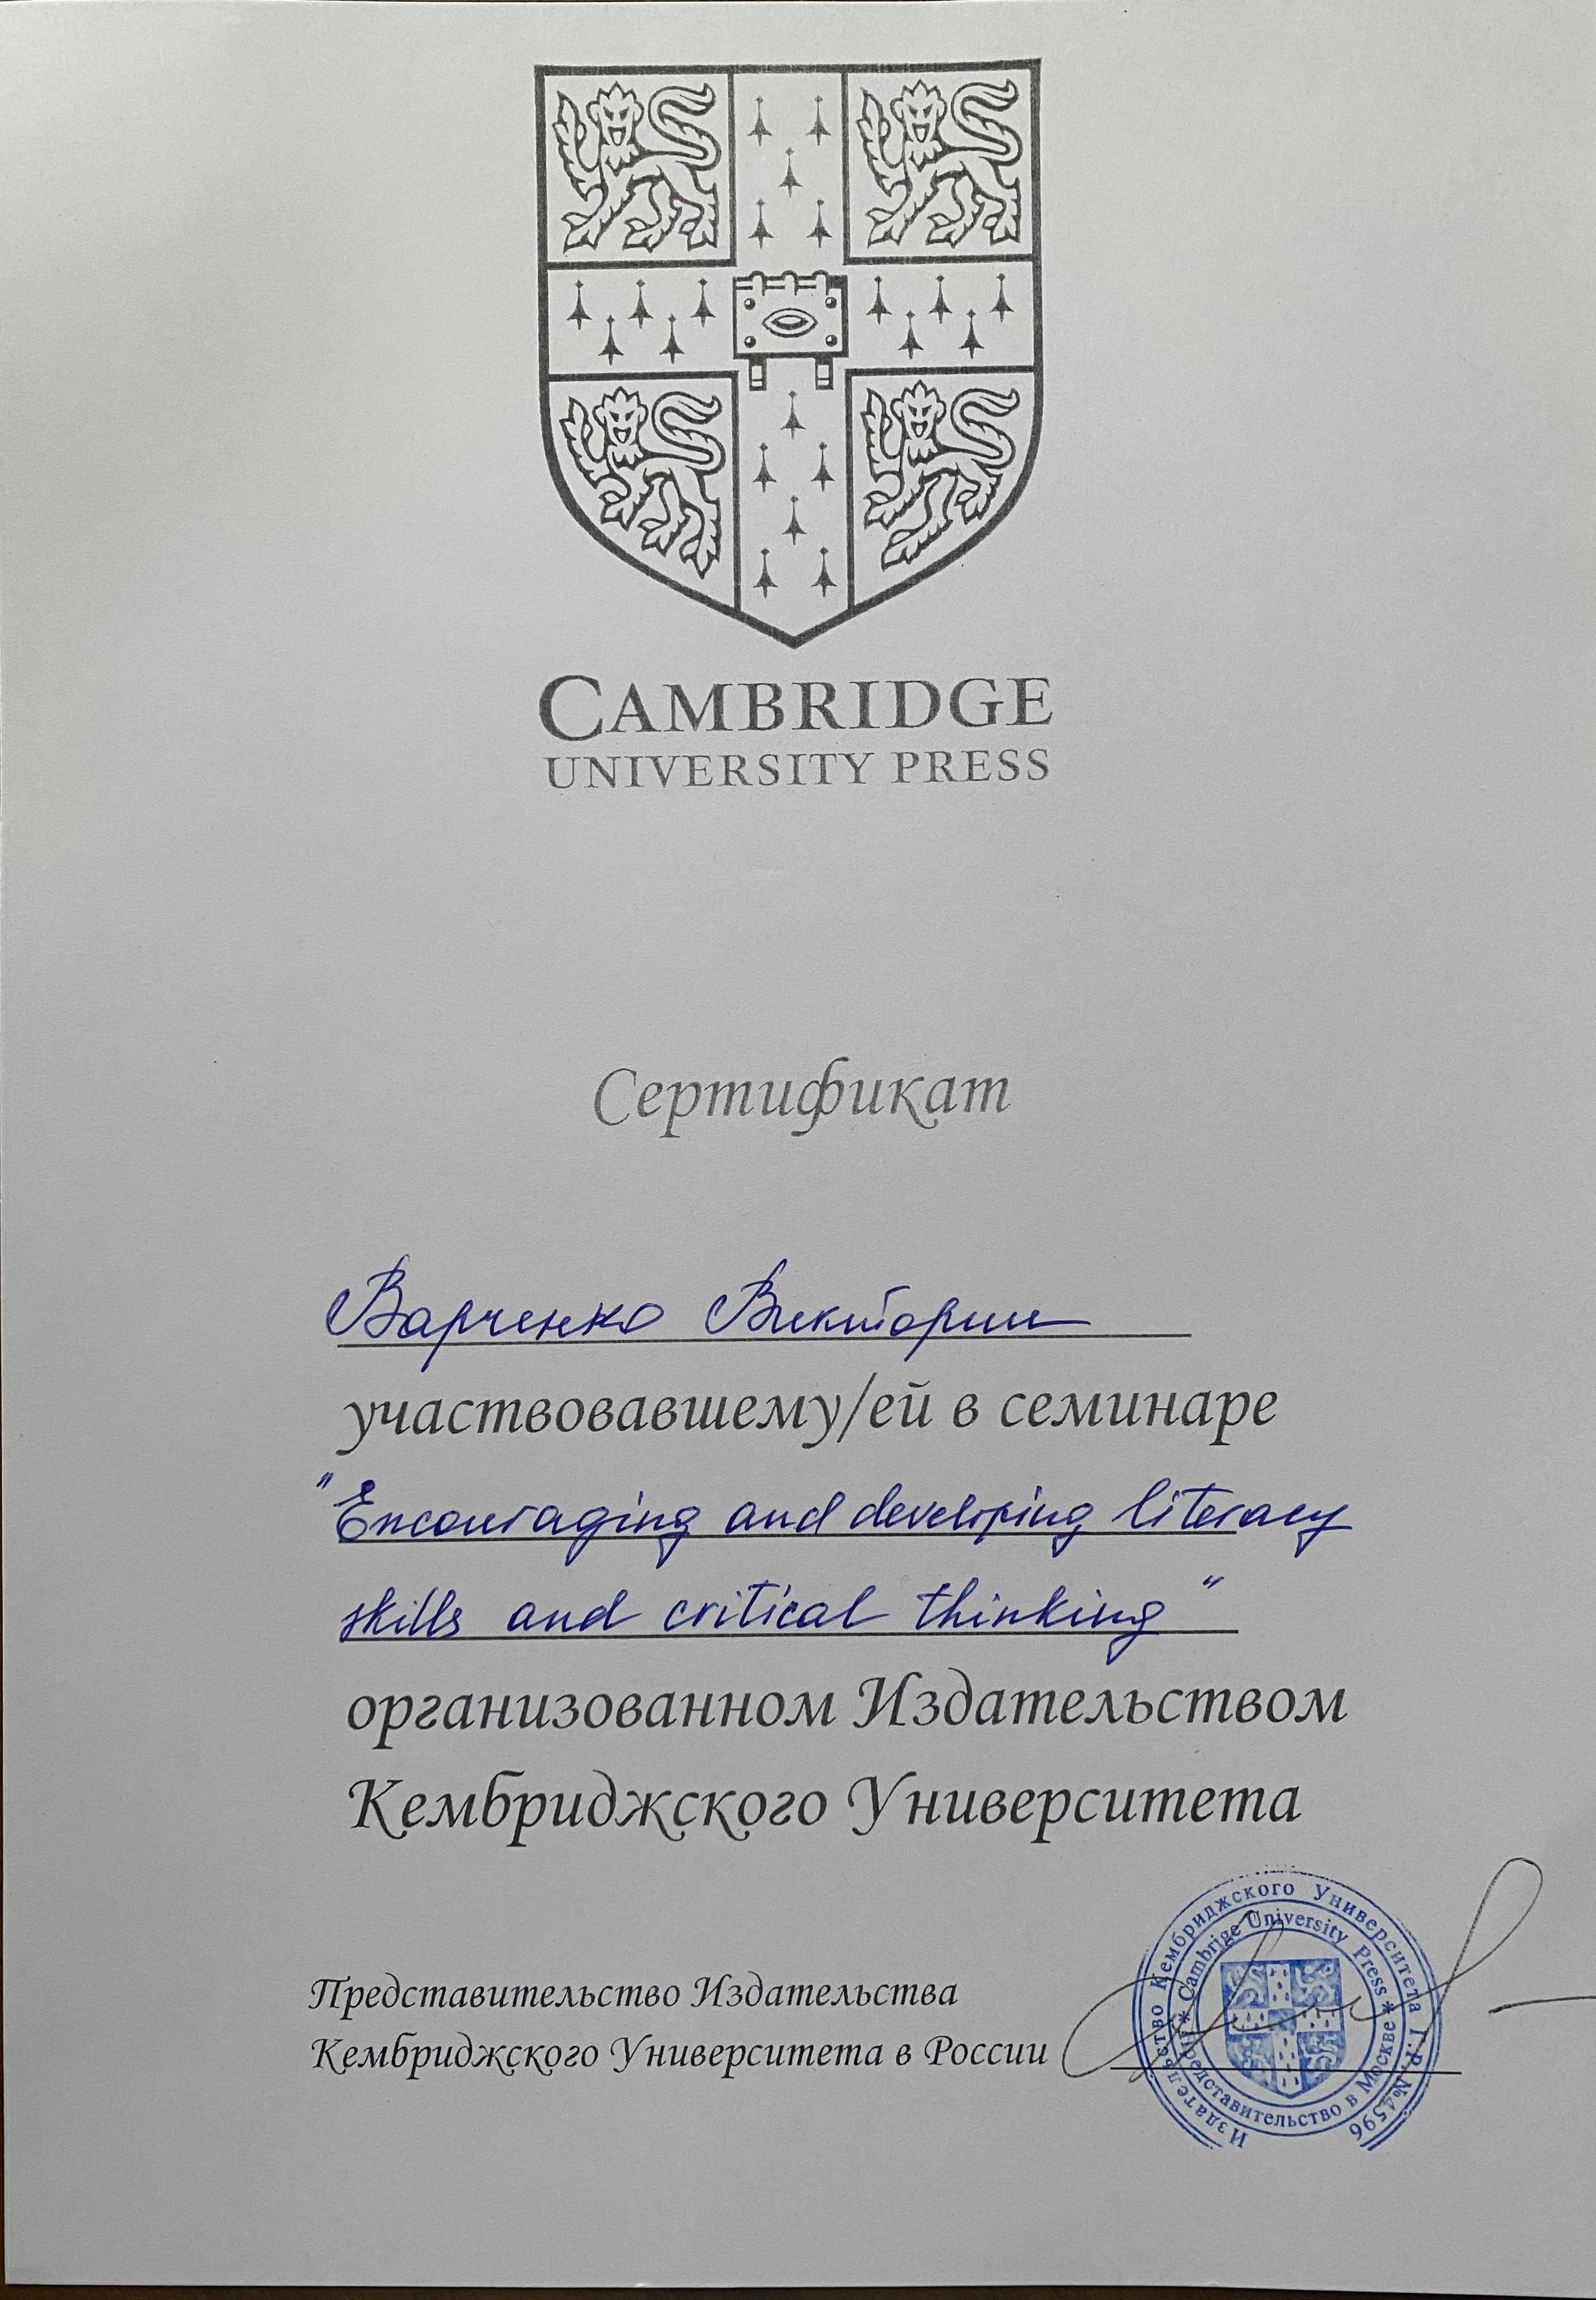 CAMBRIDGE
UNIVERSITY PRESS
Сертификат
Варченко Виктории
участвовавшему/ей в семинаре
"Encouraging and developing literacy
skills and critical thinking"
организованном Издательством
Кембриджского Университета
Представительство Издательства
Кембриджского Университета в России
Издательство Кембриджского Университета Г.Р. №4596
* Cambrige University Press *
Представительство в Москве